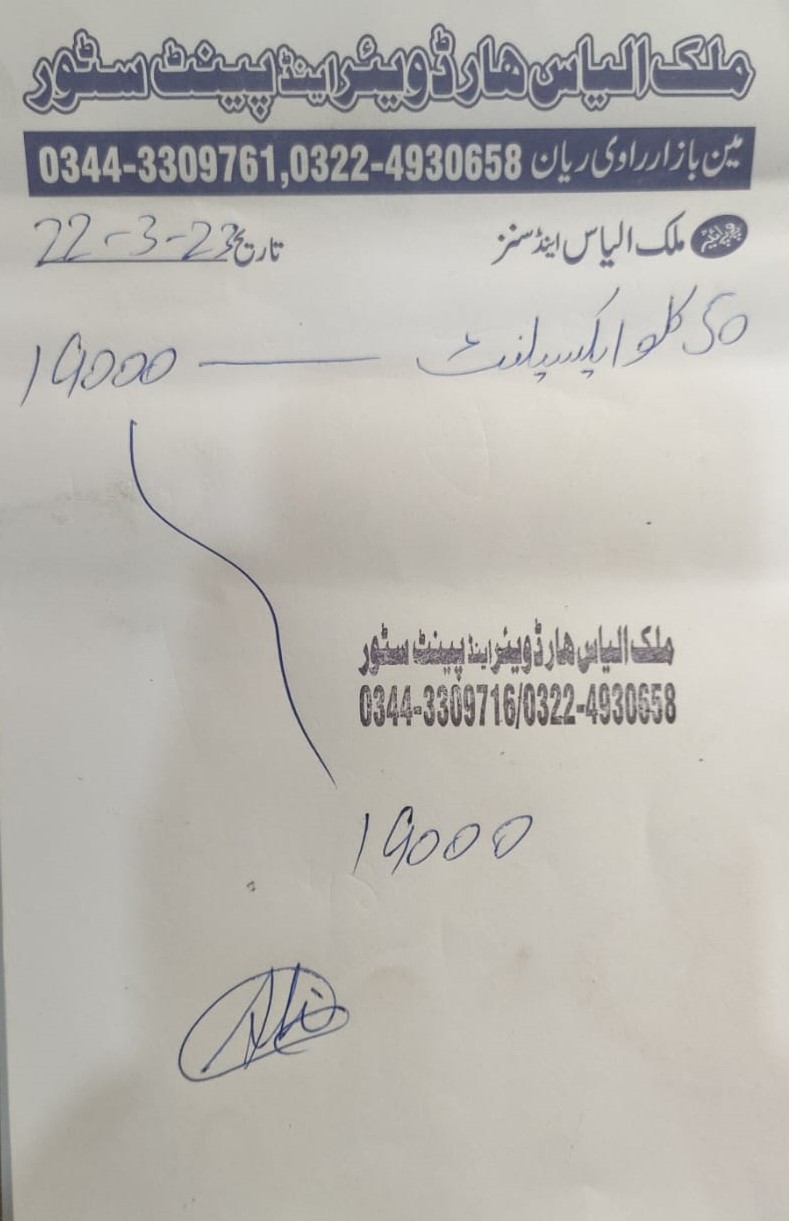 ملک الیاس ھارڈویئر اینڈ پینٹ سٹور
مین بازار راوی ریان 0344-3309761,0322-4930658
پروپرائیٹر ملک الیاس اینڈ سنز
تاریخ 22-3-23
50 کلو ایکسپلنٹ — 19000
ملک الیاس ھارڈویئر اینڈ پینٹ سٹور
0344-3309716/0322-4930658
19000